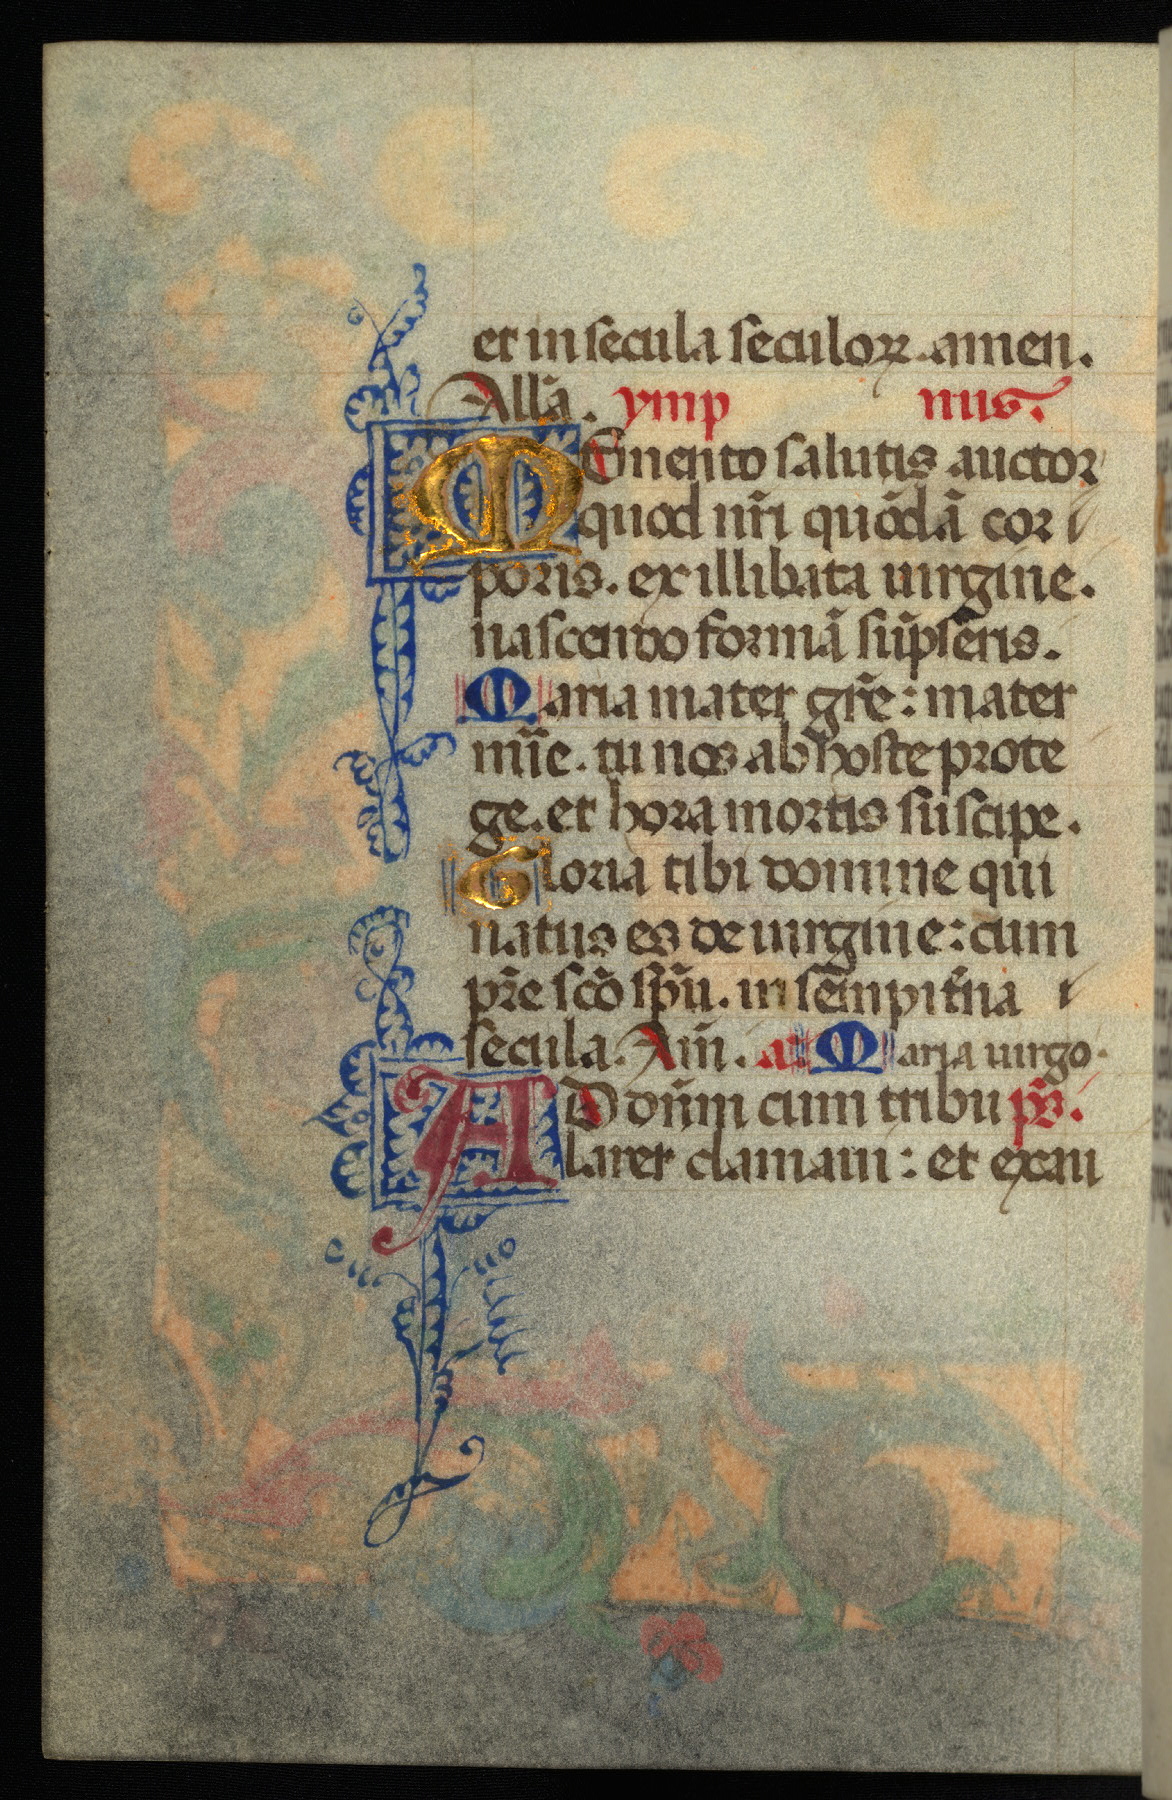 et in secula seculoꝝ. amen.
Allã. ymp nus.
MEmento salutis auctor
quod nr̃i quõdã cor
poris. ex illibata uirgine.
nascendo formã sũpseris.
Maria mater gr̃e: mater
mĩe. tu nos ab hoste prote
ge. et hora mortis suscipe.
Gloria tibi domine qui
natus es de uirgine: cum
pr̃e scõ sp̃u. in sempit̃na
secula. Am̃. a Maria uirgo.
AD dñm cum tribu ps̃.
larer clamaui: et exau